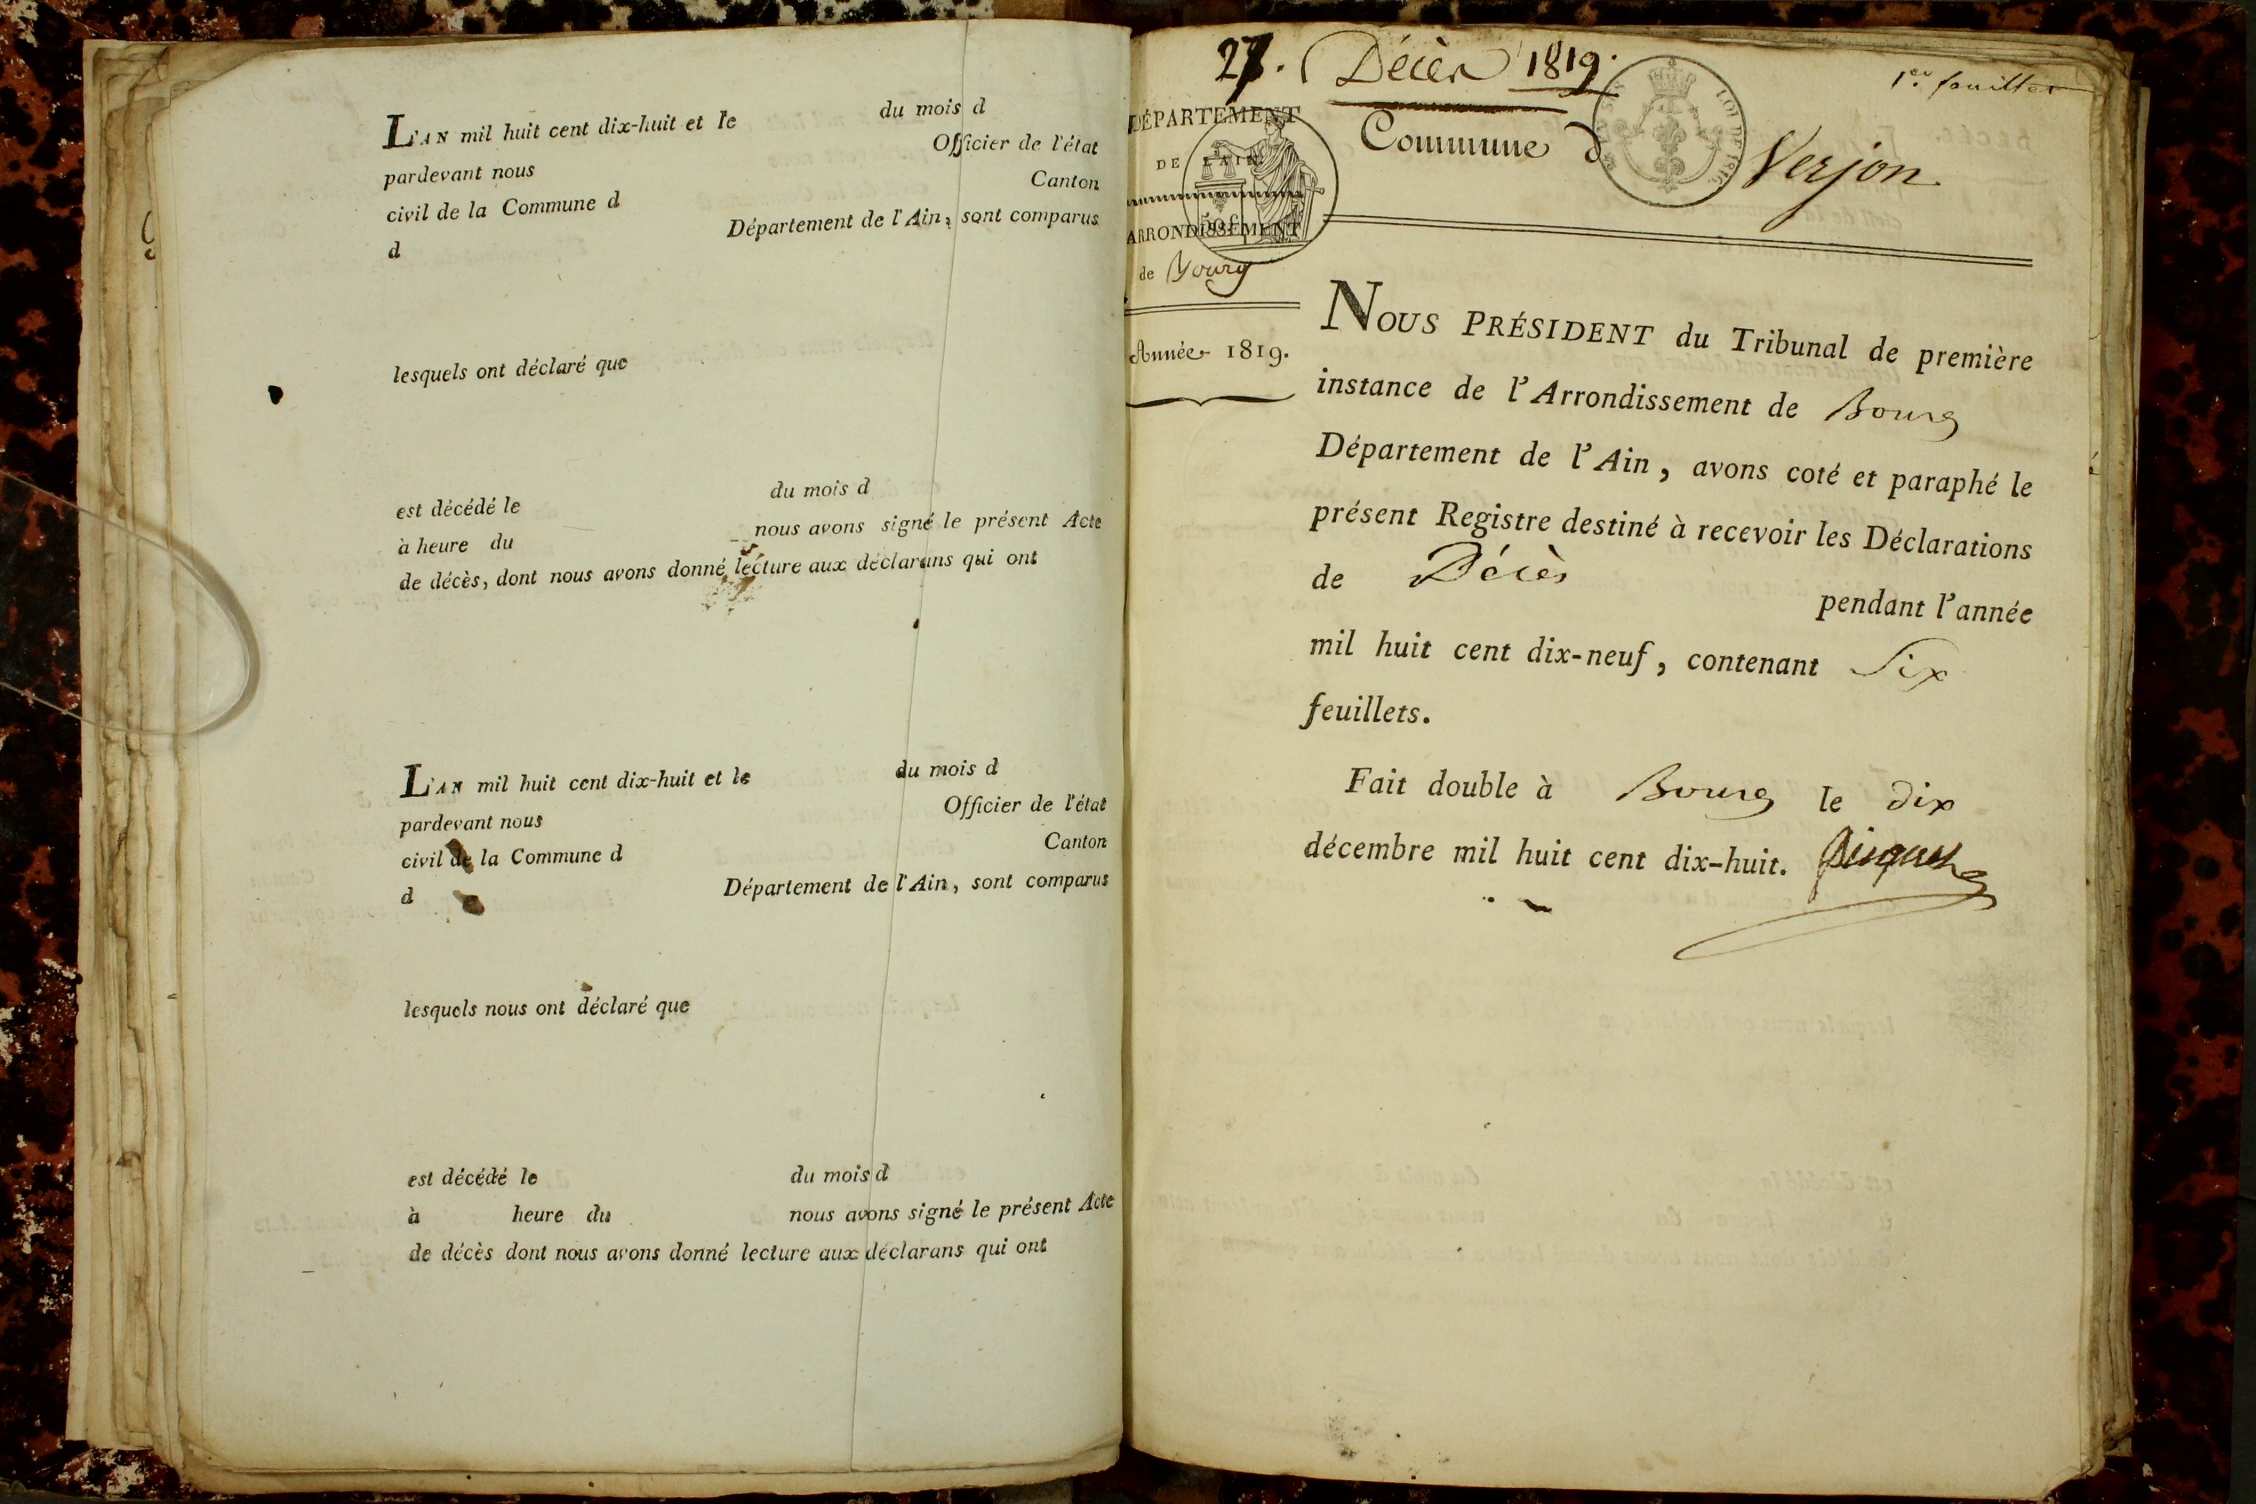 L'AN mil huit cent dix-huit et le du mois d
pardevant nous Officier de l'état
civil de la Commune d Canton
d Département de l'Ain, sont comparus
lesquels ont déclaré que
est décédé le du mois d
à heure du nous avons signé le présent Acte
de décès, dont nous avons donné lecture aux déclarans qui ont
L'AN mil huit cent dix-huit et le du mois d
pardevant nous Officier de l'état
civil de la Commune d Canton
d Département de l'Ain, sont comparus
lesquels nous ont déclaré que
est décédé le du mois d
à heure du nous avons signé le présent Acte
de décès dont nous avons donné lecture aux déclarans qui ont
27. Décès 1819.
1er feuillet
DÉPARTEMENT
DE L'AIN
ARRONDISSEMENT
de Bourg
Année 1819.
Commune d Verjon
LOI DE 1816
NOUS PRÉSIDENT du Tribunal de première
instance de l'Arrondissement de Bourg
Département de l'Ain, avons coté et paraphé le
présent Registre destiné à recevoir les Déclarations
de Décès pendant l'année
mil huit cent dix-neuf, contenant Six
feuillets.
Fait double à Bourg le dix
décembre mil huit cent dix-huit.